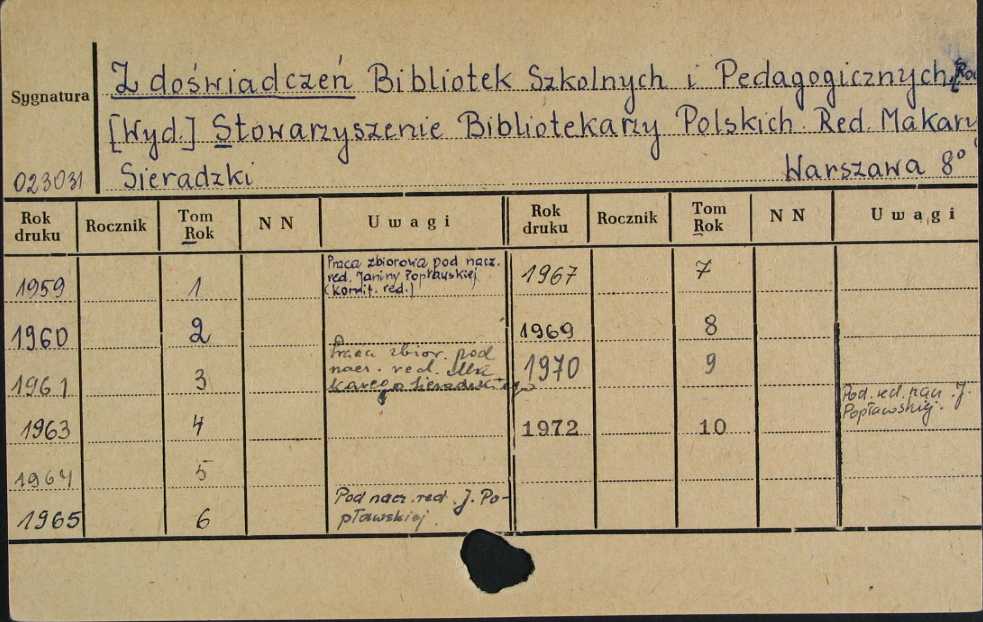 Sygnatura
Z doświadczeń Bibliotek Szkolnych i Pedagogicznych.
[Wyd.] Stowarzyszenie Bibliotekarzy Polskich. Red. Makary
023031 Sieradzki Warszawa 8°
Rok druku Rocznik Tom Rok N N Uwagi Rok druku Rocznik Tom Rok N N Uwagi
1959 1 Praca zbiorowa pod nacz. red. Janiny Popławskiej (Komit. red.) 1967 7
1960 2 1969 8
1961 3 Praca zbior. pod nacz. red. Makarego Sieradzkiego 1970 9
1963 4 1972 10 Pod. red. nacz. J. Popławskiej.
1964 5
1965 6 Pod nacz. red. J. Popławskiej.